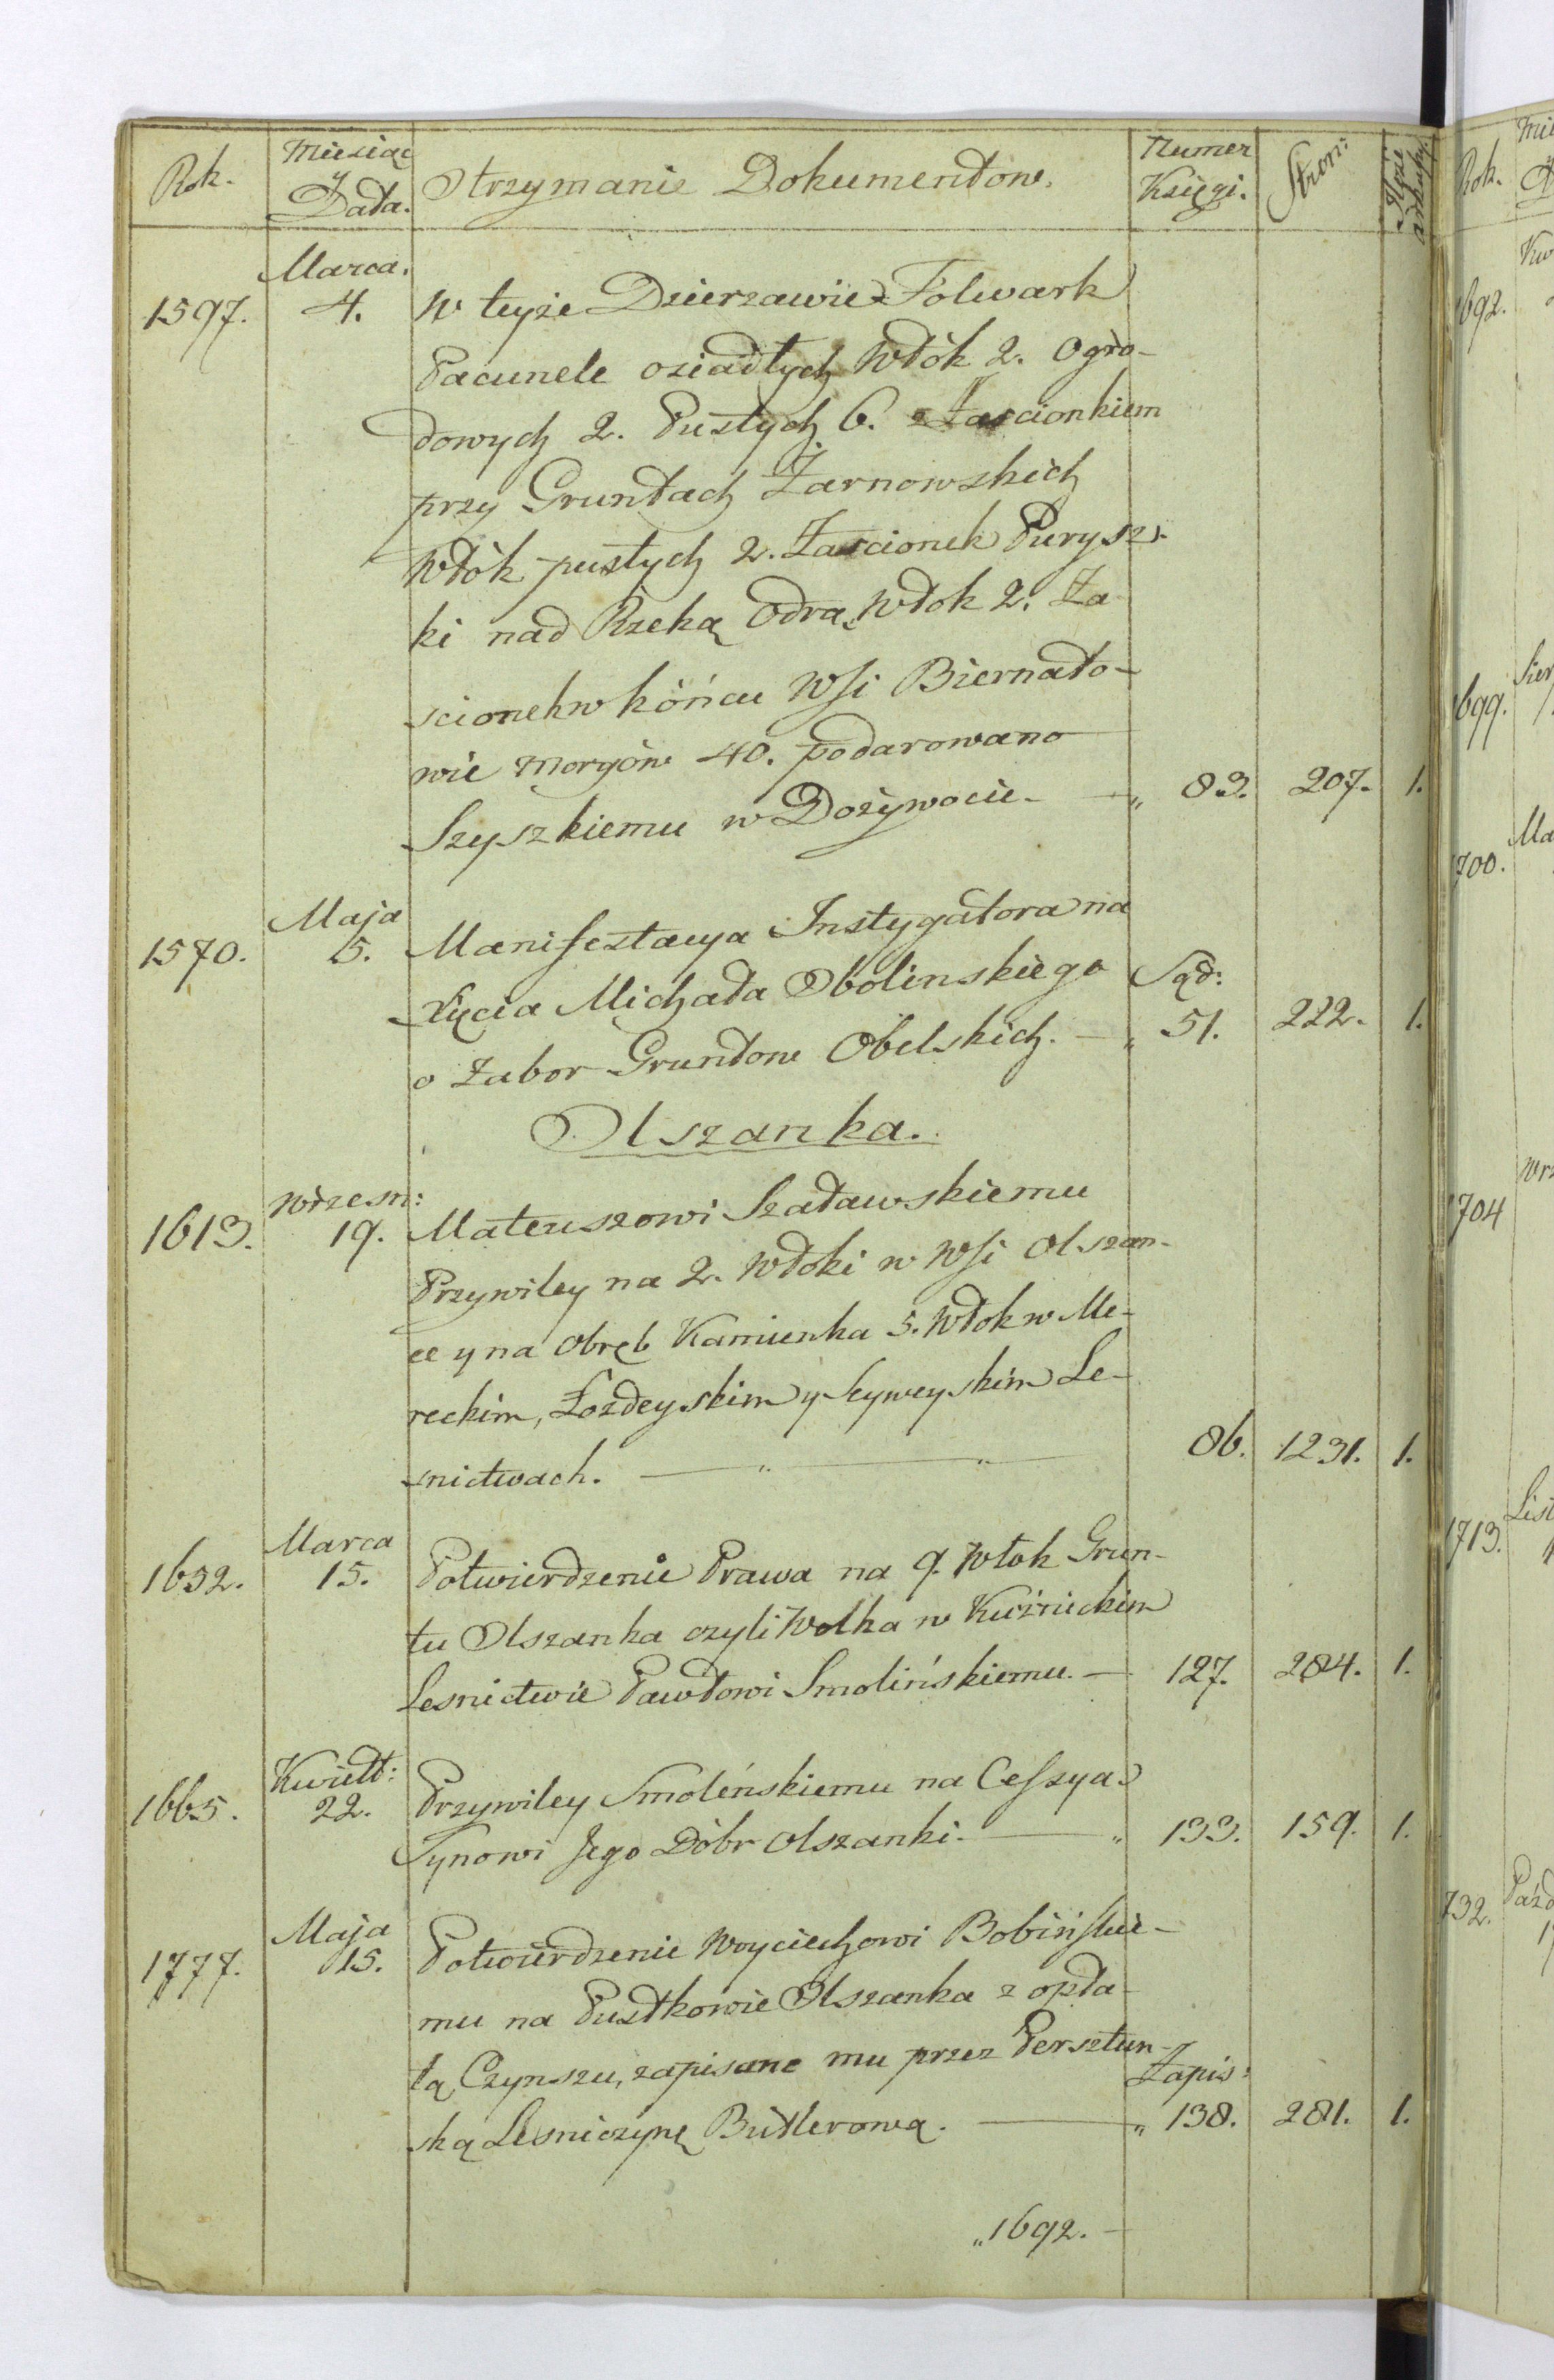 Rok. Miesiąc y Data. Otrzymanie Dokumentów. Numer Księgi. Stron: Ilość arkuszy
Marca.
1597. 4. W teyże Dzierzawie Folwark
Pacunele osiadłych Włók 2. Ogro-
dowych 2. Pustych 6. z Zascionkiem
przy Gruntach Żarnowskich
Włók pustych 2. Zascionek Purysz-
ki nad Rzeką Odrą Włok 2. Za-
scionek w końcu Wsi Biernato-
wie Morgów 40. podarowano
Szyszkiemu w Dożywocie. — „ 83. 207. 1.
Maja
1570. 5. Manifestacya Instygatora na
Xięcia Michała Obolinskiego Sąd:
o Zabor Gruntow Obelskich. — „ 51. 222. 1.
Olszanka.
Wrzesn:
1613. 19. Mateuszowi Szaławskiemu
Przywiley na 2. Włoki w Wsi Olszan-
ce y na Obręb Kamienka 5. Włok w Me-
reckim, Łozdeyskim y Seyweyskim Le-
snictwach. — „ — „ — 86. 1231. 1.
Marca
1632. 15. Potwierdzenie Prawa na 9. Włok Grun-
tu Olszanka czyli Wolka w Kuźnickim
Lesnictwie Pawłowi Smolińskiemu. — 127. 284. 1.
Kwiet:
1665. 22. Przywiley Smoleńskiemu na Cessya
Synowi Jego Dóbr Olszanki. — „ 133. 159. 1.
Maja
1777. 15. Potwierdzenie Woyciechowi Bobińskie-
mu na Pustkowie Olszanka z opła-
tą Czynszu, zapisane mu przez Persztun-
Zapis:
ską Lesniczynę Butlerową. — „ 138. 281. 1.
„1692. —